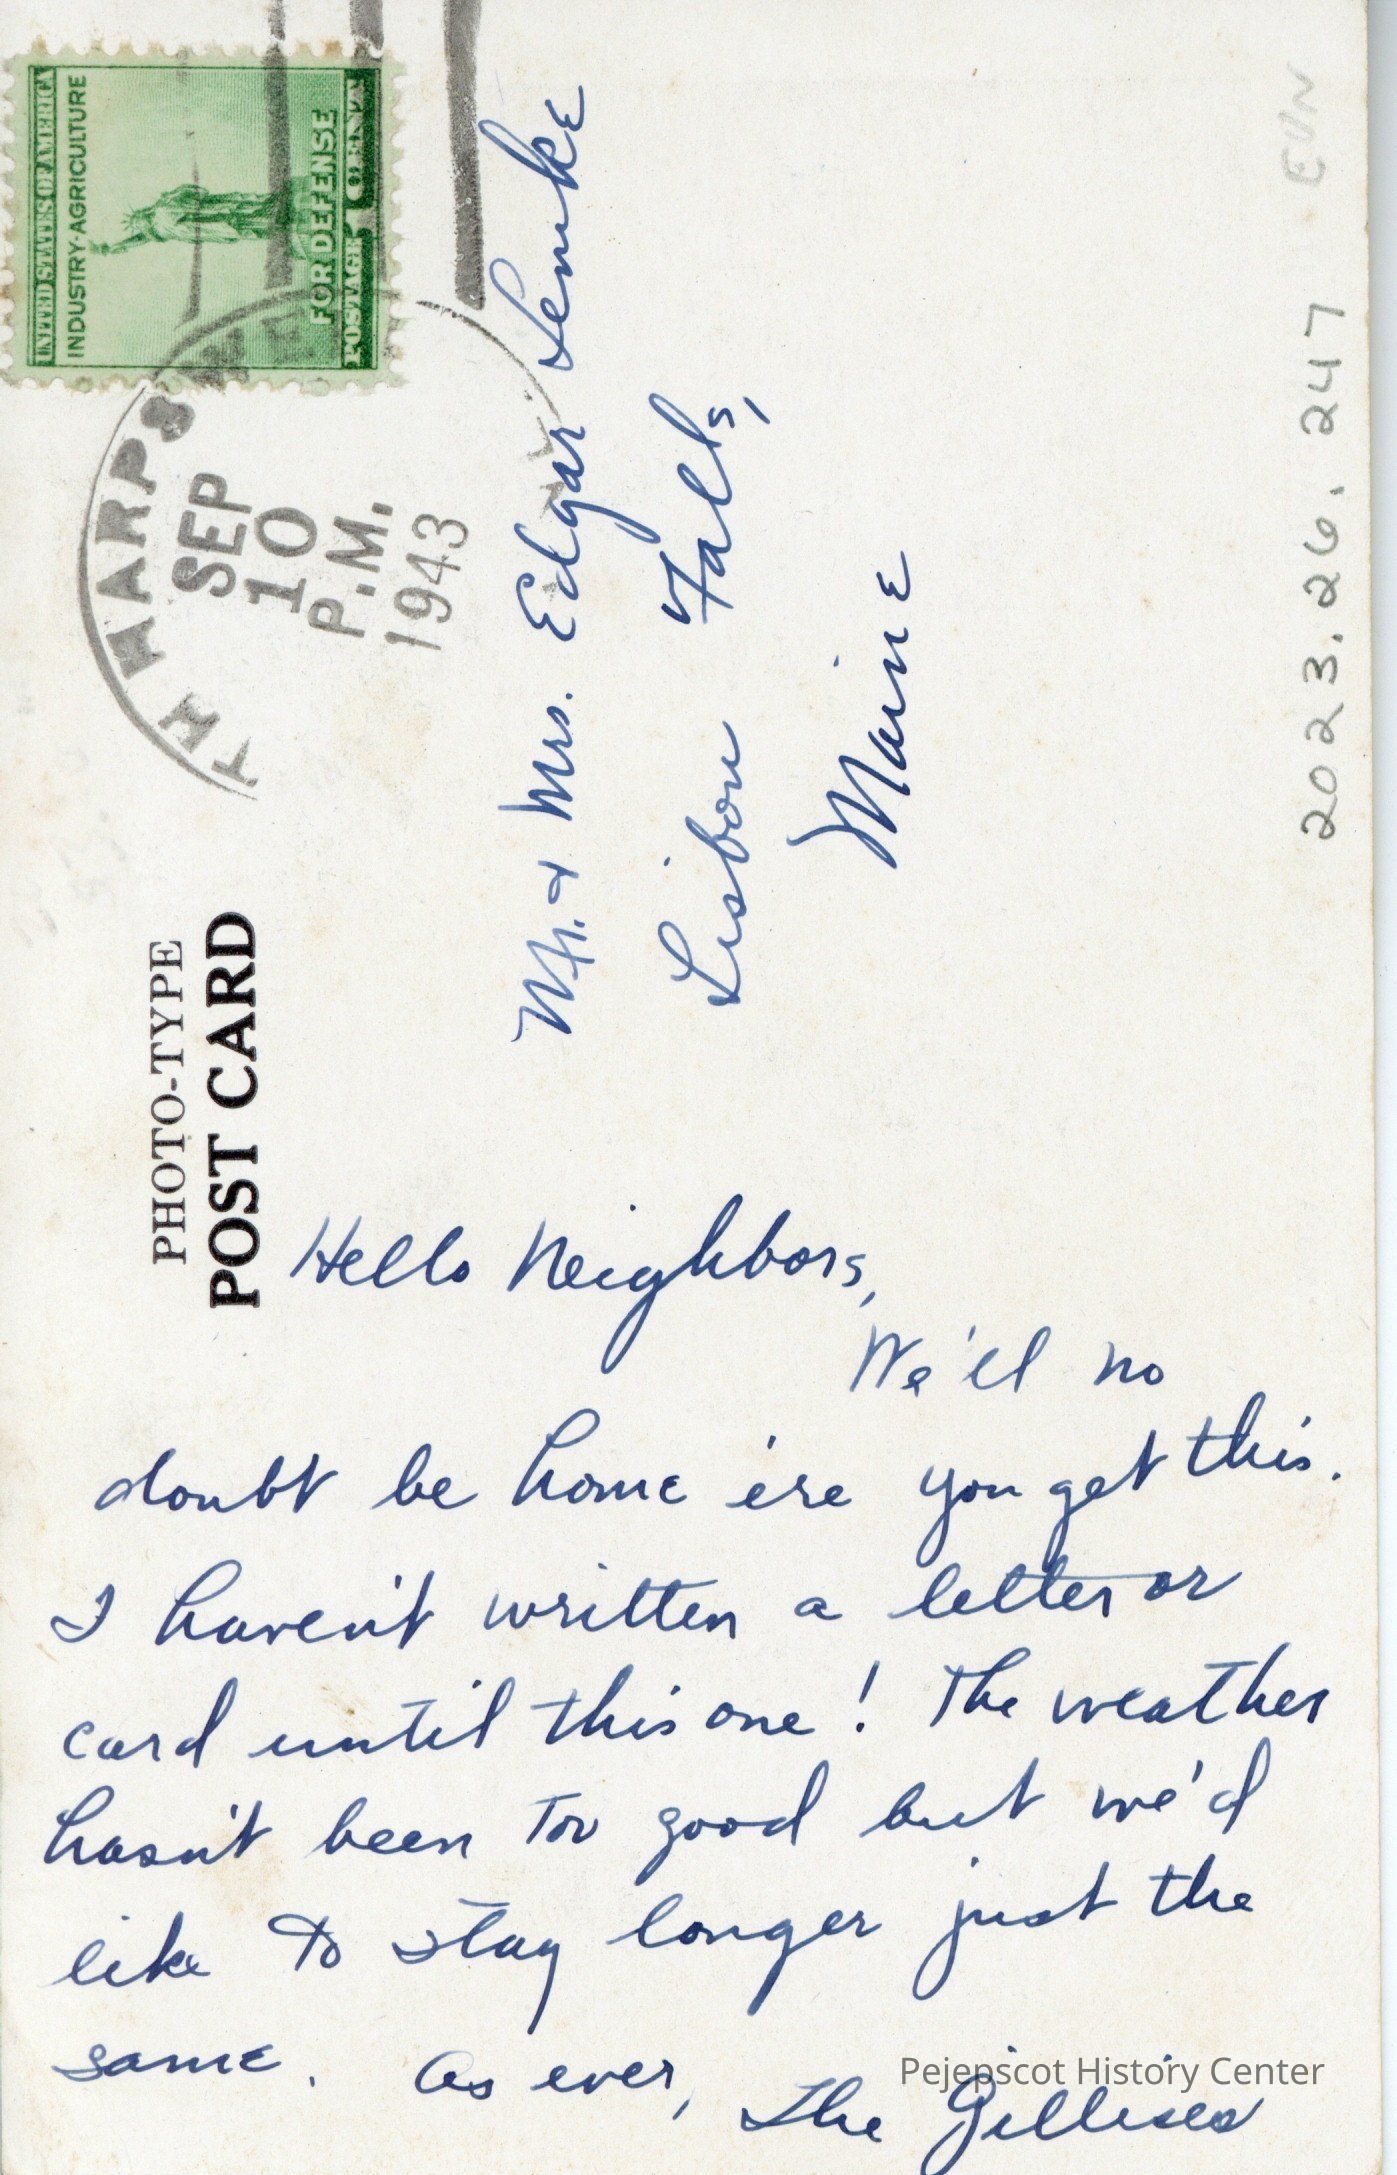 UNITED STATES OF AMERICA
INDUSTRY-AGRICULTURE
FOR DEFENSE
POSTAGE 1 CENT
TH HARPSWE
SEP
10
P.M.
1943
PHOTO-TYPE
POST CARD
Mr. & Mrs. Edgar Lemke
Lisbon Falls,
Maine
Hello Neighbors,
We'll no
doubt be home e're you get this.
I haven't written a letter or
card until this one! The weather
hasn't been too good but we'd
like to stay longer just the
same. As ever,
The Gillises
2023.26.247 EVN
Pejepscot History Center